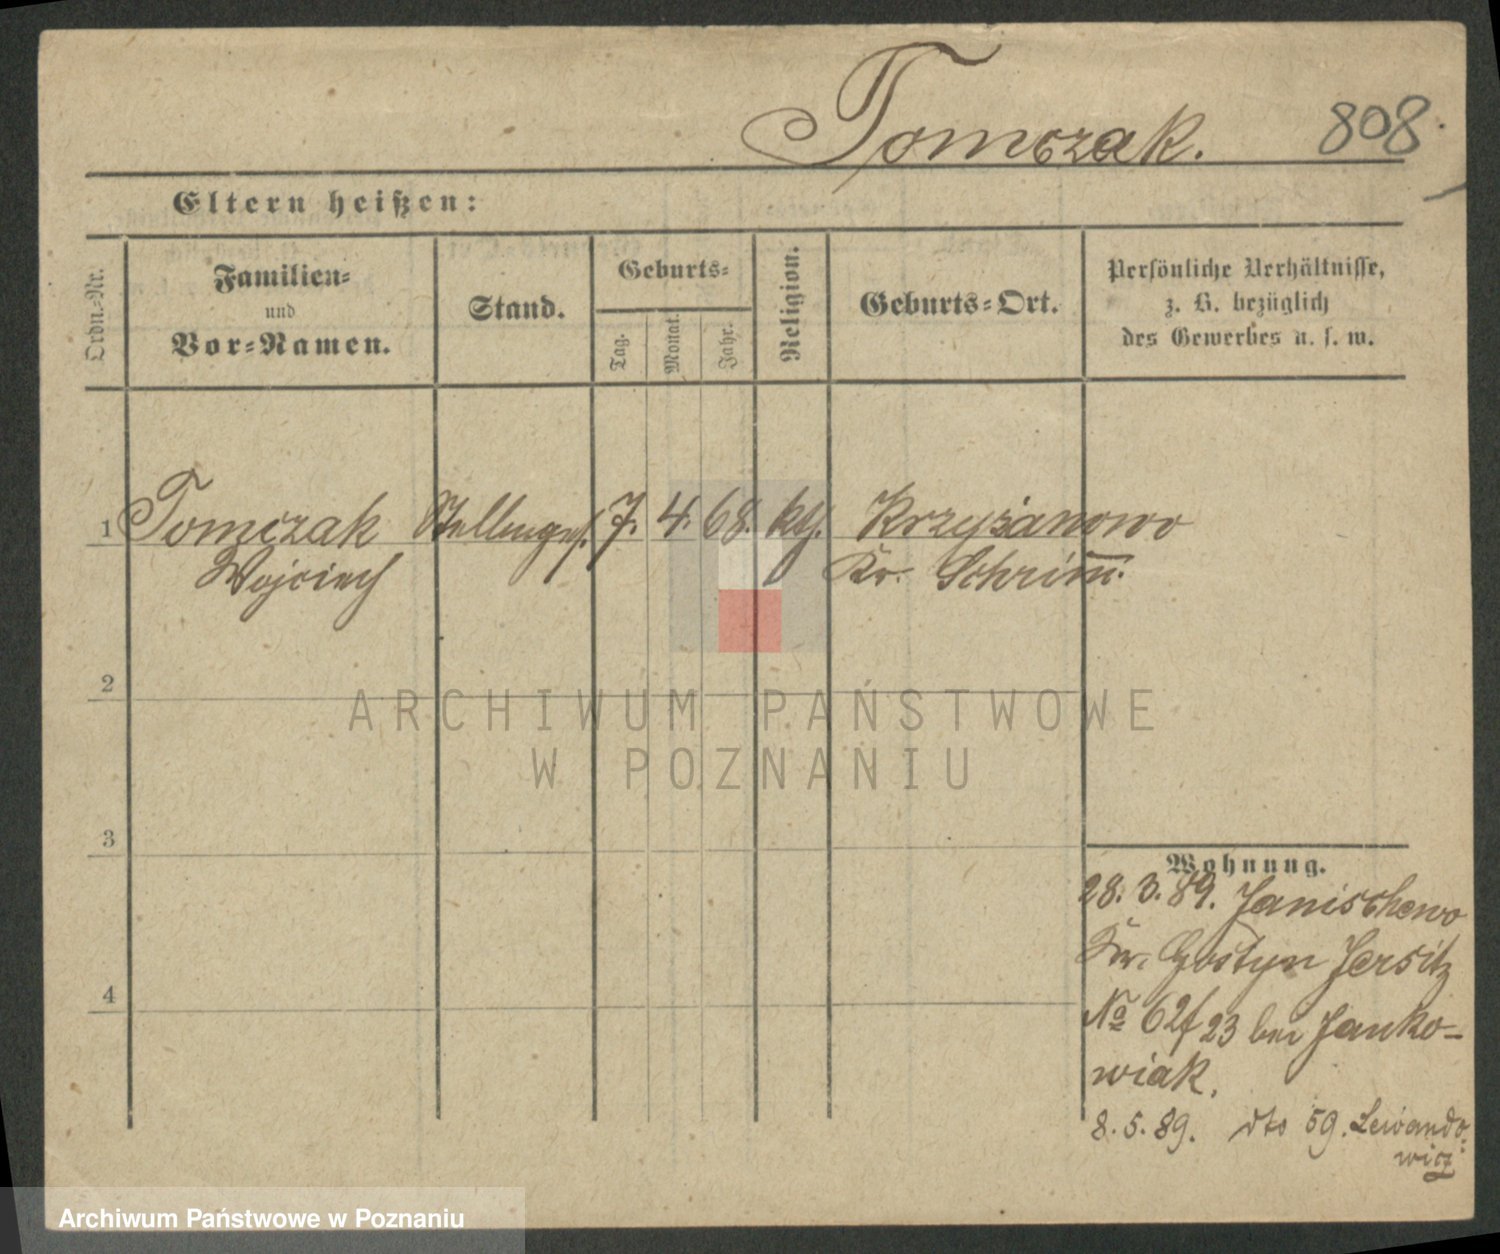 Tomczak. 808.
Eltern heißen:
Ordn.-Nr.
Familien-
und
Vor-Namen.
Stand.
Geburts-
Tag.
Monat.
Jahr.
Religion.
Geburts-Ort.
Persönliche Verhältnisse,
z. B. bezüglich
des Gewerbes u. s. w.
1 Tomczak Stellmges. 7. 4. 68. kth. Krzyżanowo
Wojciech Kr. Schrim̅.
2
3
4
Wohnung.
28. 3. 89. Janischewo
Kr. Gostyn Jersitz
No 62/23 bei Janko-
wiak.
8. 5. 89. dto 59. Lewando-
wicz
ARCHIWUM PAŃSTWOWE
W POZNANIU
Archiwum Państwowe w Poznaniu